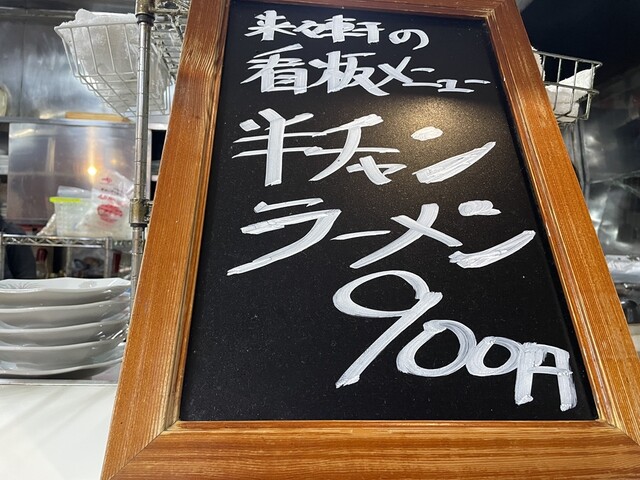 来々軒の
看板メニュー
半チャン
ラーメン
900円